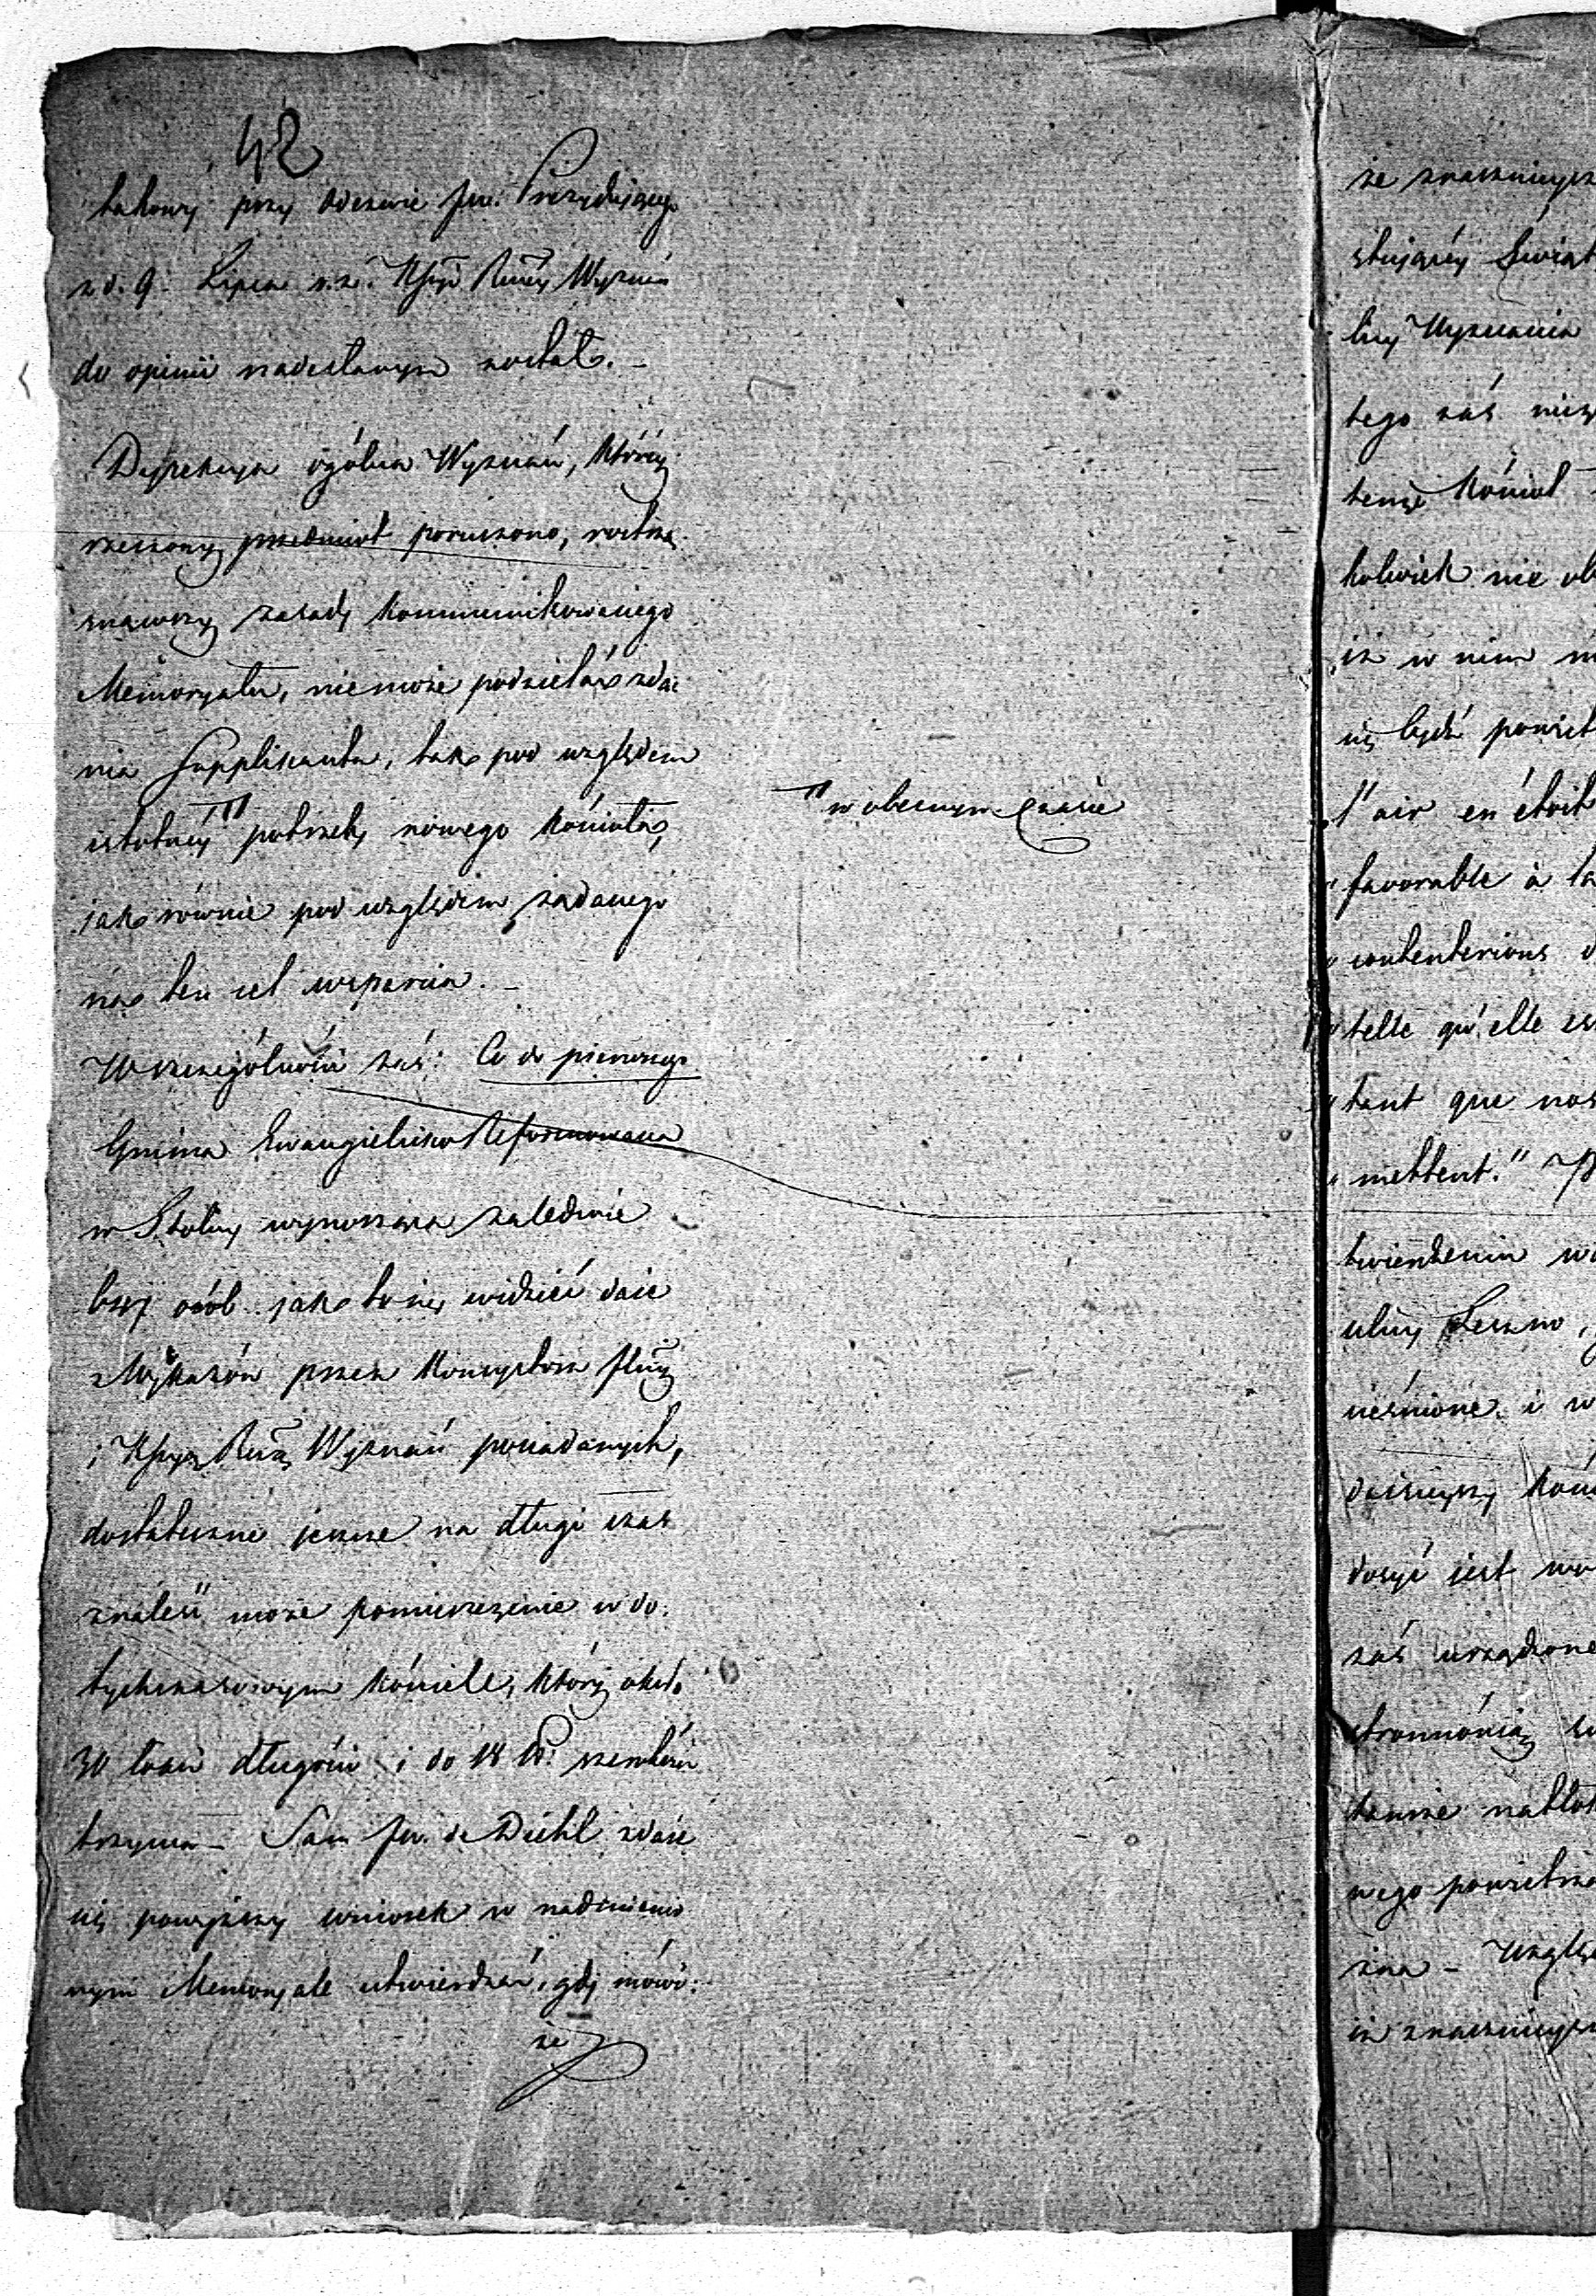 42
takowy przy odezwie Jw. Prezydującego
z d. 9. Lipca r. z. Wyznań
do opinii nadesłanym został. –
Dyrekcya ogólna Wyznań, któréy
rzeczony przedmiot poruczono, roztrzą
snąwszy zasady kommunikowanego
Memoryału, nie może podzielać zda-
nia Supplikanta, tak pod względem
istotnéy " potrzeby nowego kościoła,
" w obecnym czasie
jako równie pod względem żądanego
na ten cel wsparcia. –
W szczególności zaś: Co do pierwszego
Gmina Ewangelicko Reformowana
w Stolicy wynosząca zaledwie
osób jak to się widzieć daie
z Wykazów przez Konsystorz
i Wyznań posiadanych,
dostatecznie jeszcze na długi czas
znaleść może pomieszczenie w do-
tychczasowym kościele, który około
30 łokci długości i do 18 szerokości
trzyma – Sam Jw. de Diehl zdaie
się powyższy wniosek w nadmienio
nym Memoryale utwierdzać, gdy mówi:
że
że znaczniejsz
stującéy Świąt
licy Wyznania
tego zaś
tenże kościoł
kolwiek nie
iż w nim
się bydź powiet
"l'air en étoit
"favorable à la
"contenterions d
"telle qu'elle es
"tant que nos
"mettent."
twierdzenia
ulicy Leszno,
ścieśnione i w
dzisieyszy kośc
dosyć jest
zaś urządzone
stronnością
tamże nabłoż
wego powietrza
żna – Wzglę
iż znaczniejsz